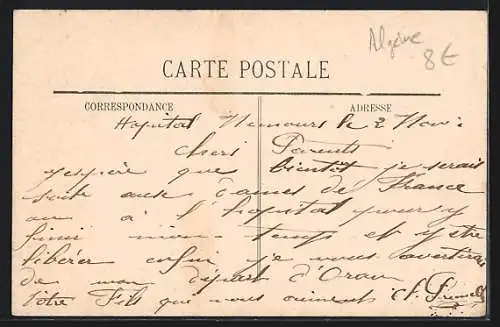 Algérie
8€
CARTE POSTALE
CORRESPONDANCE
ADRESSE
Hopital Nemours le 2 Nov
Chers Parents
j'espère que bientôt je serais
soit aux Dames de France
ou à l'hopital pour y
finir mon temps et y être
libérer enfin je vous avertirai
de mon départ d'Oran
Votre Fils qui vous aiment